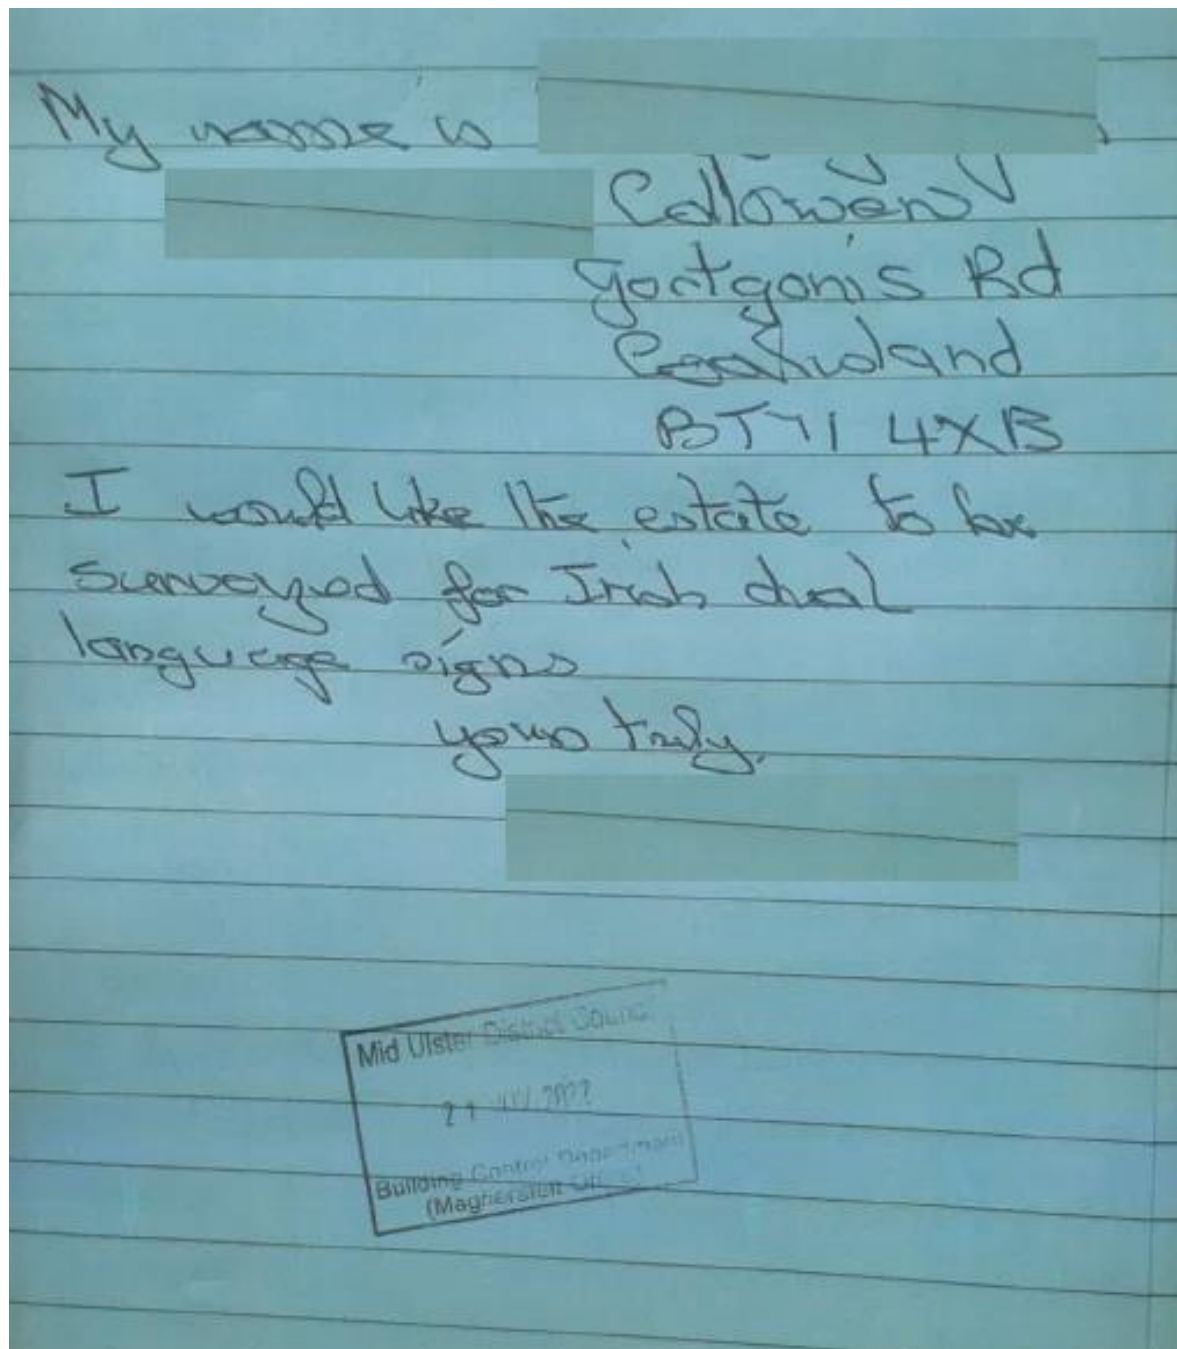 My name is
Callowen
Gortgonis Rd
Coalisland
BT71 4XB
I would like the estate to be
surveyed for Irish dual
language signs
yours truly,
Mid Ulster District Council
21 2022
Building Control Department
(Magherafelt Office)